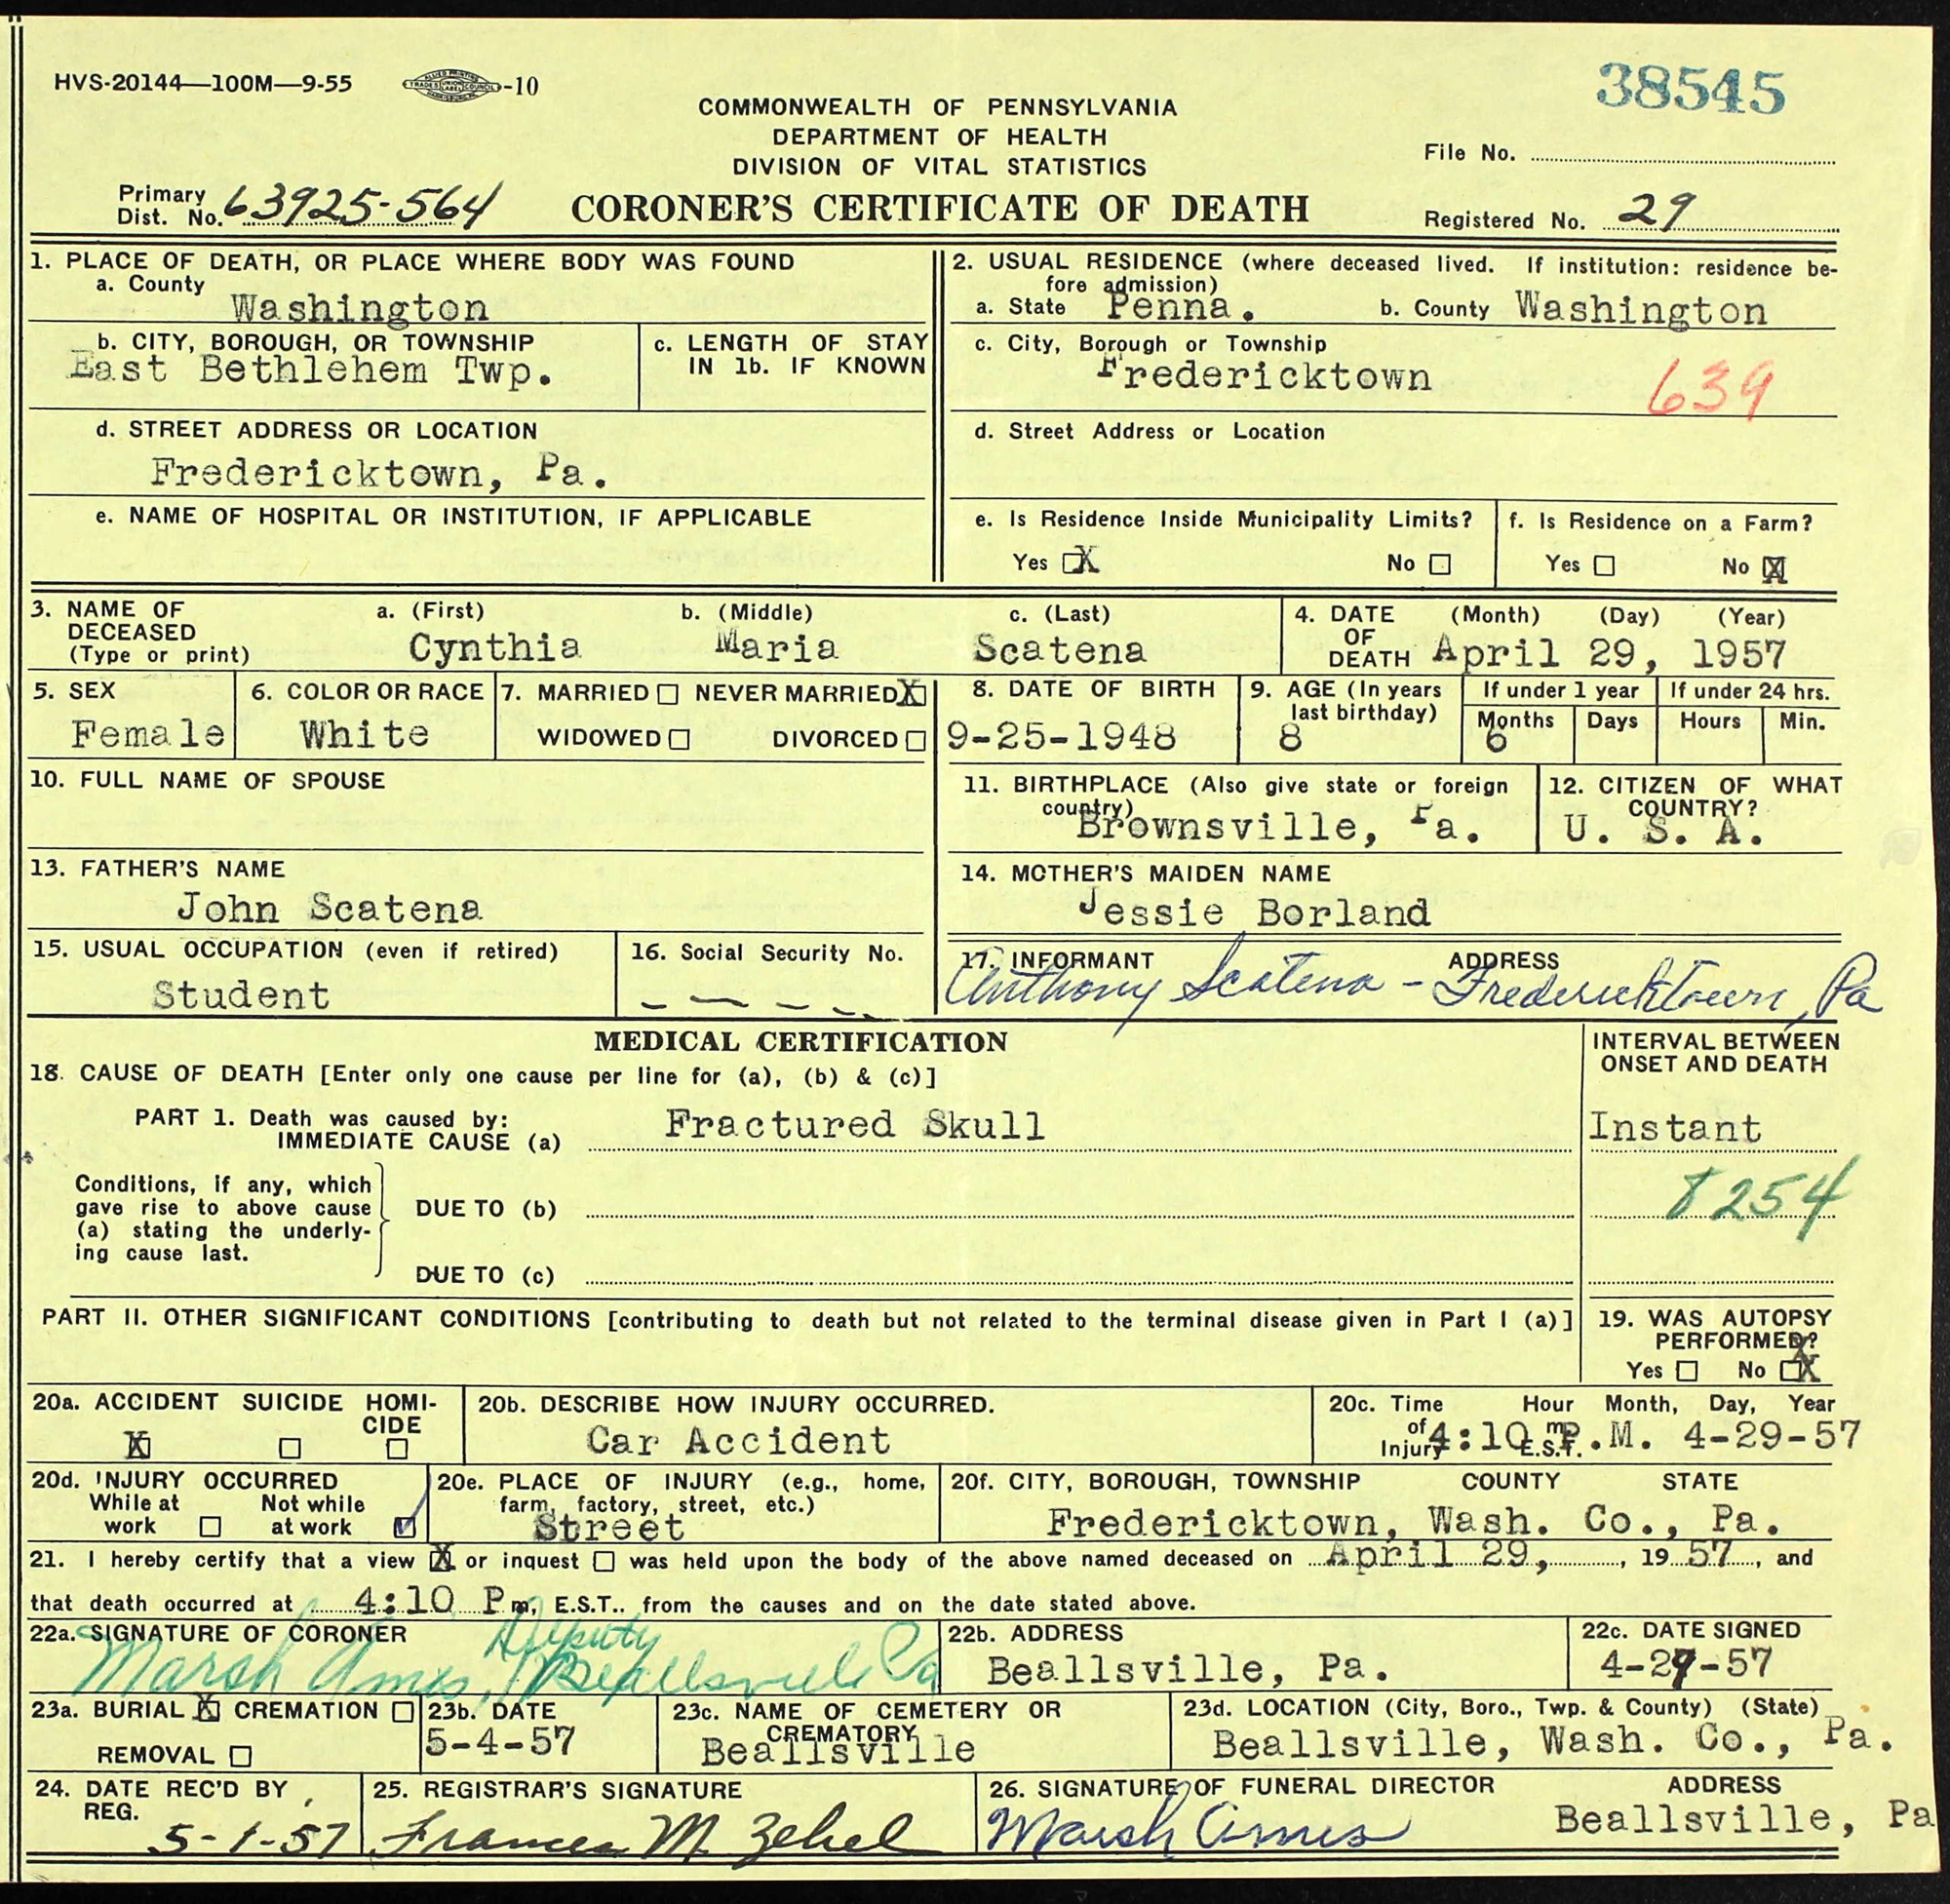 HVS-20144—100M—9-55 -10
38545
COMMONWEALTH OF PENNSYLVANIA
DEPARTMENT OF HEALTH
DIVISION OF VITAL STATISTICS
File No.
Primary Dist. No. 63925-564
CORONER'S CERTIFICATE OF DEATH
Registered No. 29
1. PLACE OF DEATH, OR PLACE WHERE BODY WAS FOUND
a. County
Washington
2. USUAL RESIDENCE (where deceased lived. If institution: residence be-
fore admission)
a. State Penna. b. County Washington
b. CITY, BOROUGH, OR TOWNSHIP
East Bethlehem Twp.
c. LENGTH OF STAY
IN 1b. IF KNOWN
c. City, Borough or Township
Fredericktown 639
d. STREET ADDRESS OR LOCATION
Fredericktown, Pa.
d. Street Address or Location
e. NAME OF HOSPITAL OR INSTITUTION, IF APPLICABLE
e. Is Residence Inside Municipality Limits?
Yes X No
f. Is Residence on a Farm?
Yes No X
3. NAME OF
DECEASED
(Type or print)
a. (First) b. (Middle) c. (Last)
Cynthia Maria Scatena
4. DATE OF DEATH (Month) (Day) (Year)
April 29, 1957
5. SEX
Female
6. COLOR OR RACE
White
7. MARRIED NEVER MARRIED X
WIDOWED DIVORCED
8. DATE OF BIRTH
9-25-1948
9. AGE (In years
last birthday)
8
If under 1 year
Months Days
6
If under 24 hrs.
Hours Min.
10. FULL NAME OF SPOUSE
11. BIRTHPLACE (Also give state or foreign
country)
Brownsville, Pa.
12. CITIZEN OF WHAT
COUNTRY?
U. S. A.
13. FATHER'S NAME
John Scatena
14. MOTHER'S MAIDEN NAME
Jessie Borland
15. USUAL OCCUPATION (even if retired)
Student
16. Social Security No.
— — — —
17. INFORMANT ADDRESS
Anthony Scatena - Fredericktown, Pa
MEDICAL CERTIFICATION
INTERVAL BETWEEN
ONSET AND DEATH
18. CAUSE OF DEATH [Enter only one cause per line for (a), (b) & (c)]
PART 1. Death was caused by:
IMMEDIATE CAUSE (a) Fractured Skull Instant
Conditions, if any, which
gave rise to above cause
(a) stating the underly-
ing cause last.
DUE TO (b)
254
DUE TO (c)
PART II. OTHER SIGNIFICANT CONDITIONS [contributing to death but not related to the terminal disease given in Part I (a)]
19. WAS AUTOPSY
PERFORMED?
Yes No X
20a. ACCIDENT SUICIDE HOMI-
CIDE
X
20b. DESCRIBE HOW INJURY OCCURRED.
Car Accident
20c. Time of Injury Hour Month, Day, Year
4:10 P.M. 4-29-57
m. E.S.T.
20d. INJURY OCCURRED
While at work Not while at work
20e. PLACE OF INJURY (e.g., home,
farm, factory, street, etc.)
Street
20f. CITY, BOROUGH, TOWNSHIP COUNTY STATE
Fredericktown, Wash. Co., Pa.
21. I hereby certify that a view X or inquest was held upon the body of the above named deceased on April 29, , 19 57, and
that death occurred at 4:10 P m, E.S.T.. from the causes and on the date stated above.
22a. SIGNATURE OF CORONER
Deputy
Marsh Ames, Beallsville Pa
22b. ADDRESS
Beallsville, Pa.
22c. DATE SIGNED
4-29-57
23a. BURIAL X CREMATION
REMOVAL
23b. DATE
5-4-57
23c. NAME OF CEMETERY OR
CREMATORY
Beallsville
23d. LOCATION (City, Boro., Twp. & County) (State)
Beallsville, Wash. Co., Pa.
24. DATE REC'D BY
REG.
5-1-57
25. REGISTRAR'S SIGNATURE
Frances M. Zebel
26. SIGNATURE OF FUNERAL DIRECTOR ADDRESS
Marsh Ames Beallsville, Pa